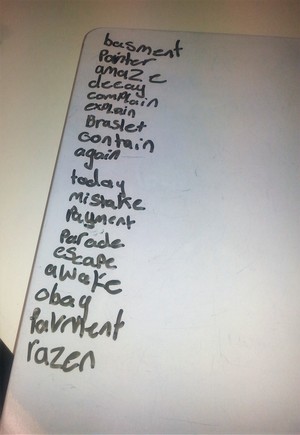 basment
Painter
amaze
decay
complain
explain
Braslet
contain
again
today
mistake
Payment
Parade
escape
awake
obay
Pavment
razen